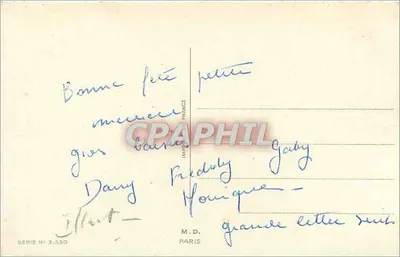 Bonne fête petite
gros baisers
Dany Freddy Gaby
Monique -
grande lettre suit
CPAPHIL
SERIE N° 3.530
M. D.
PARIS